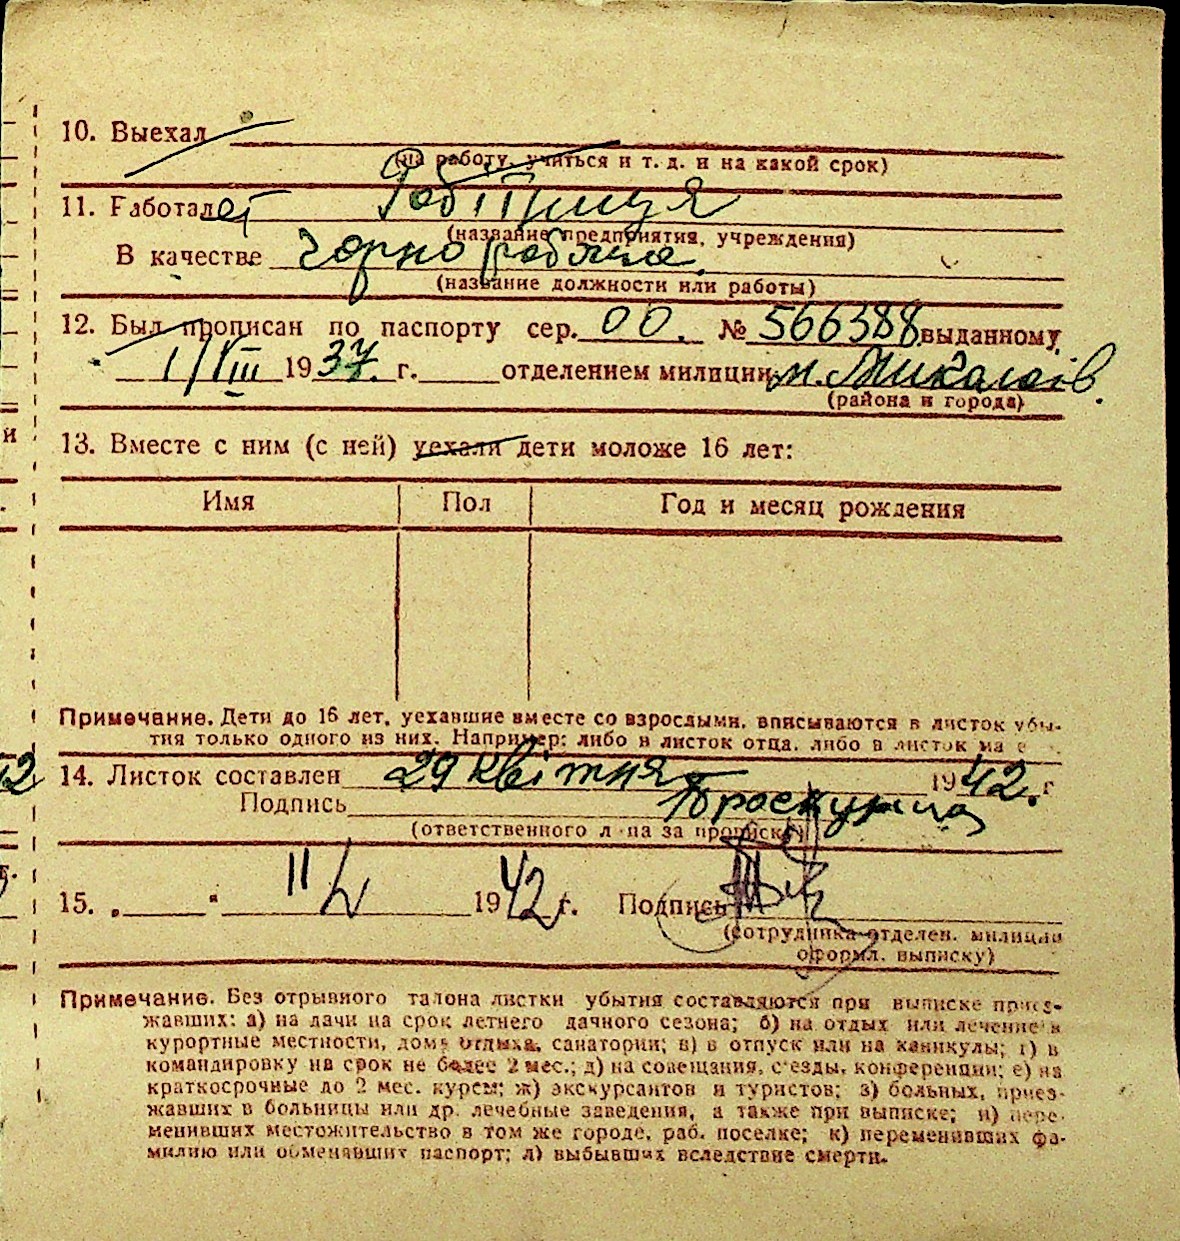 10. Выехал
(на работу, учиться и т. д. и на какой срок)
11. Работает Робітниця
(название предприятия, учреждения)
В качестве чорнорабоча
(название должности или работы)
12. Был прописан по паспорту сер. 00. № 566388 выданному
1/VIII 1937 г. отделением милиции м. Миколаїв.
(района и города)
13. Вместе с ним (с ней) уехали дети моложе 16 лет:
Имя Пол Год и месяц рождения
Примечание. Дети до 16 лет, уехавшие вместе со взрослыми, вписываются в листок убы-
тия только одного из них. Например: либо в листок отца, либо в листок ма е
14. Листок составлен 29 квітня 1942. г
Подпись Проскурина
(ответственного л па за прописку)
15. „ " 11/V 1942 г. Подпись
(сотрудника отделен. милиции
оформл. выписку)
Примечание. Без отрывного талона листки убытия составляются при выписке приез-
жавших: а) на дачи на срок летнего дачного сезона; б) на отдых или лечение в
курортные местности, дома отдыха, санатории; в) в отпуск или на каникулы; г) в
командировку на срок не более 2 мес.; д) на совещания, съезды, конференции; е) на
краткосрочные до 2 мес. курсы; ж) экскурсантов и туристов; з) больных, приез-
жавших в больницы или др. лечебные заведения, а также при выписке; и) пере-
менивших местожительство в том же городе, раб. поселке; к) переменивших фа-
милию или обменявших паспорт; л) выбывших вследствие смерти.